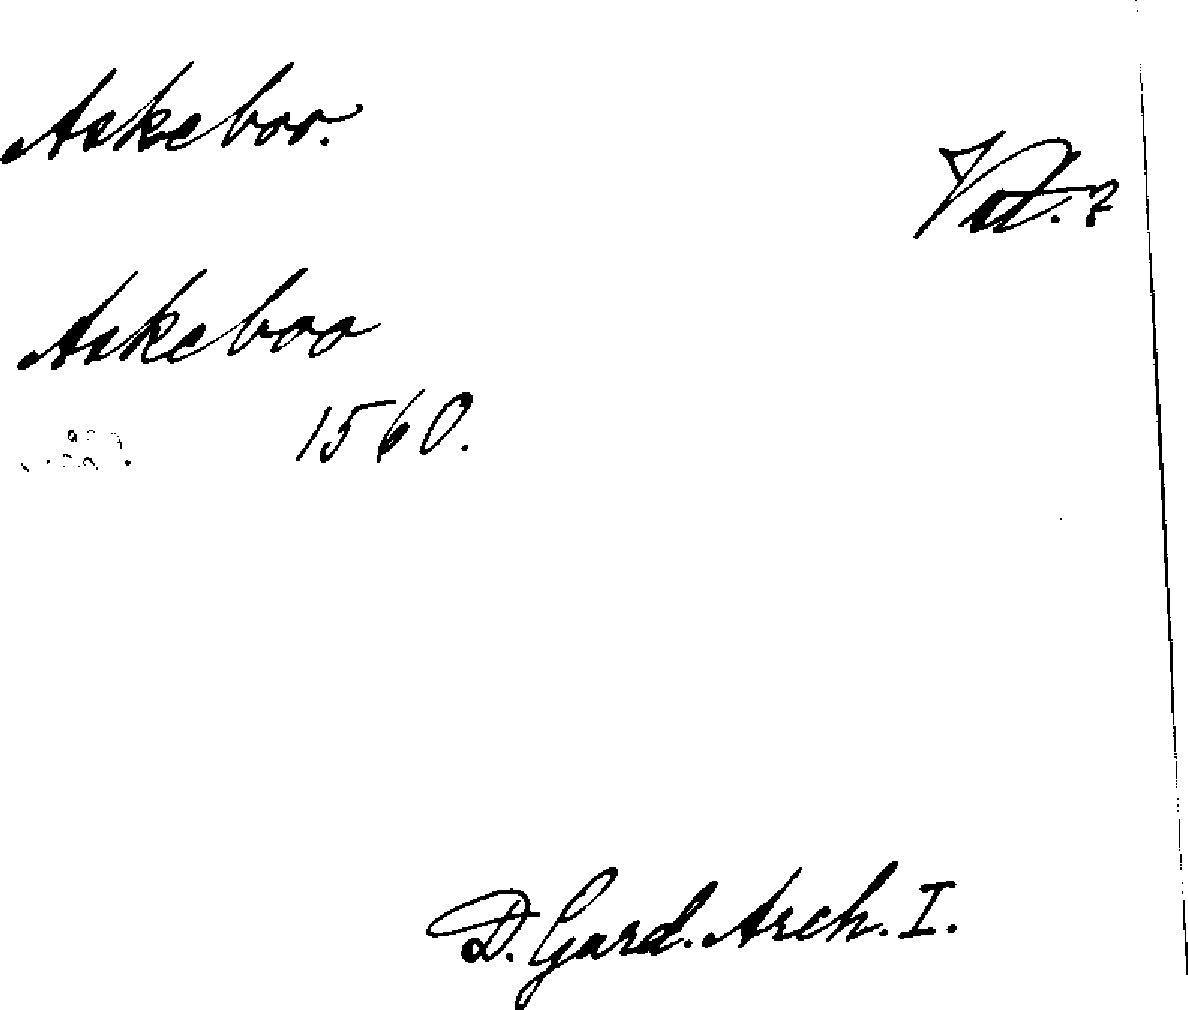 Askebor.
Vist. 7
Askeboo
1560.
D. Gard. Arch. I.